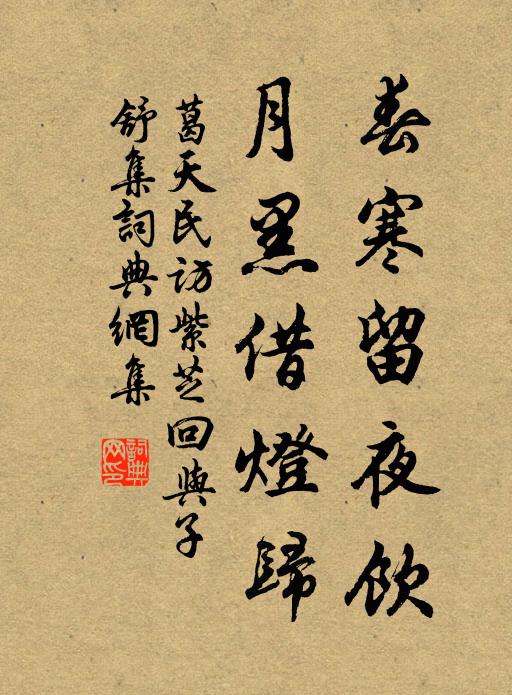 春寒留夜飲
月黑借燈歸
葛天民訪紫芝回與子
舒集詞典網集
詞典
网印